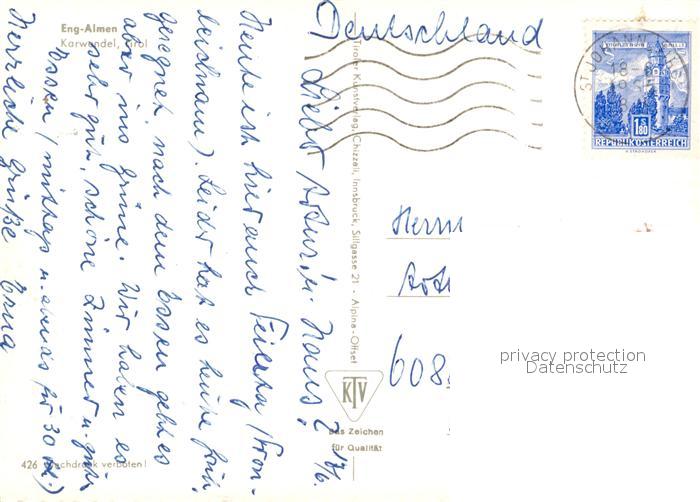 Eng-Almen
Karwendel, Tirol
Deutschland
Heute ist hier auch Feiertag (Fron-
leichnam) Leider hat es heute früh
geregnet, nach dem Essen geht es
aber ins grüne. Wir haben es
sehr gut, schöne Zimmer u. gutes
Essen (mittags u. abends für 30 M.)
Herzliche Grüße Erna
Tiroler Kunstverlag, Chizzali, Innsbruck, Sillgasse 21 - Alpina-Offset
Herrn
608
KTV
Das Zeichen
für Qualität
426 Nachdruck verboten!
ST. JOHANN
S 1.80
REPUBLIK ÖSTERREICH
privacy protection
Datenschutz